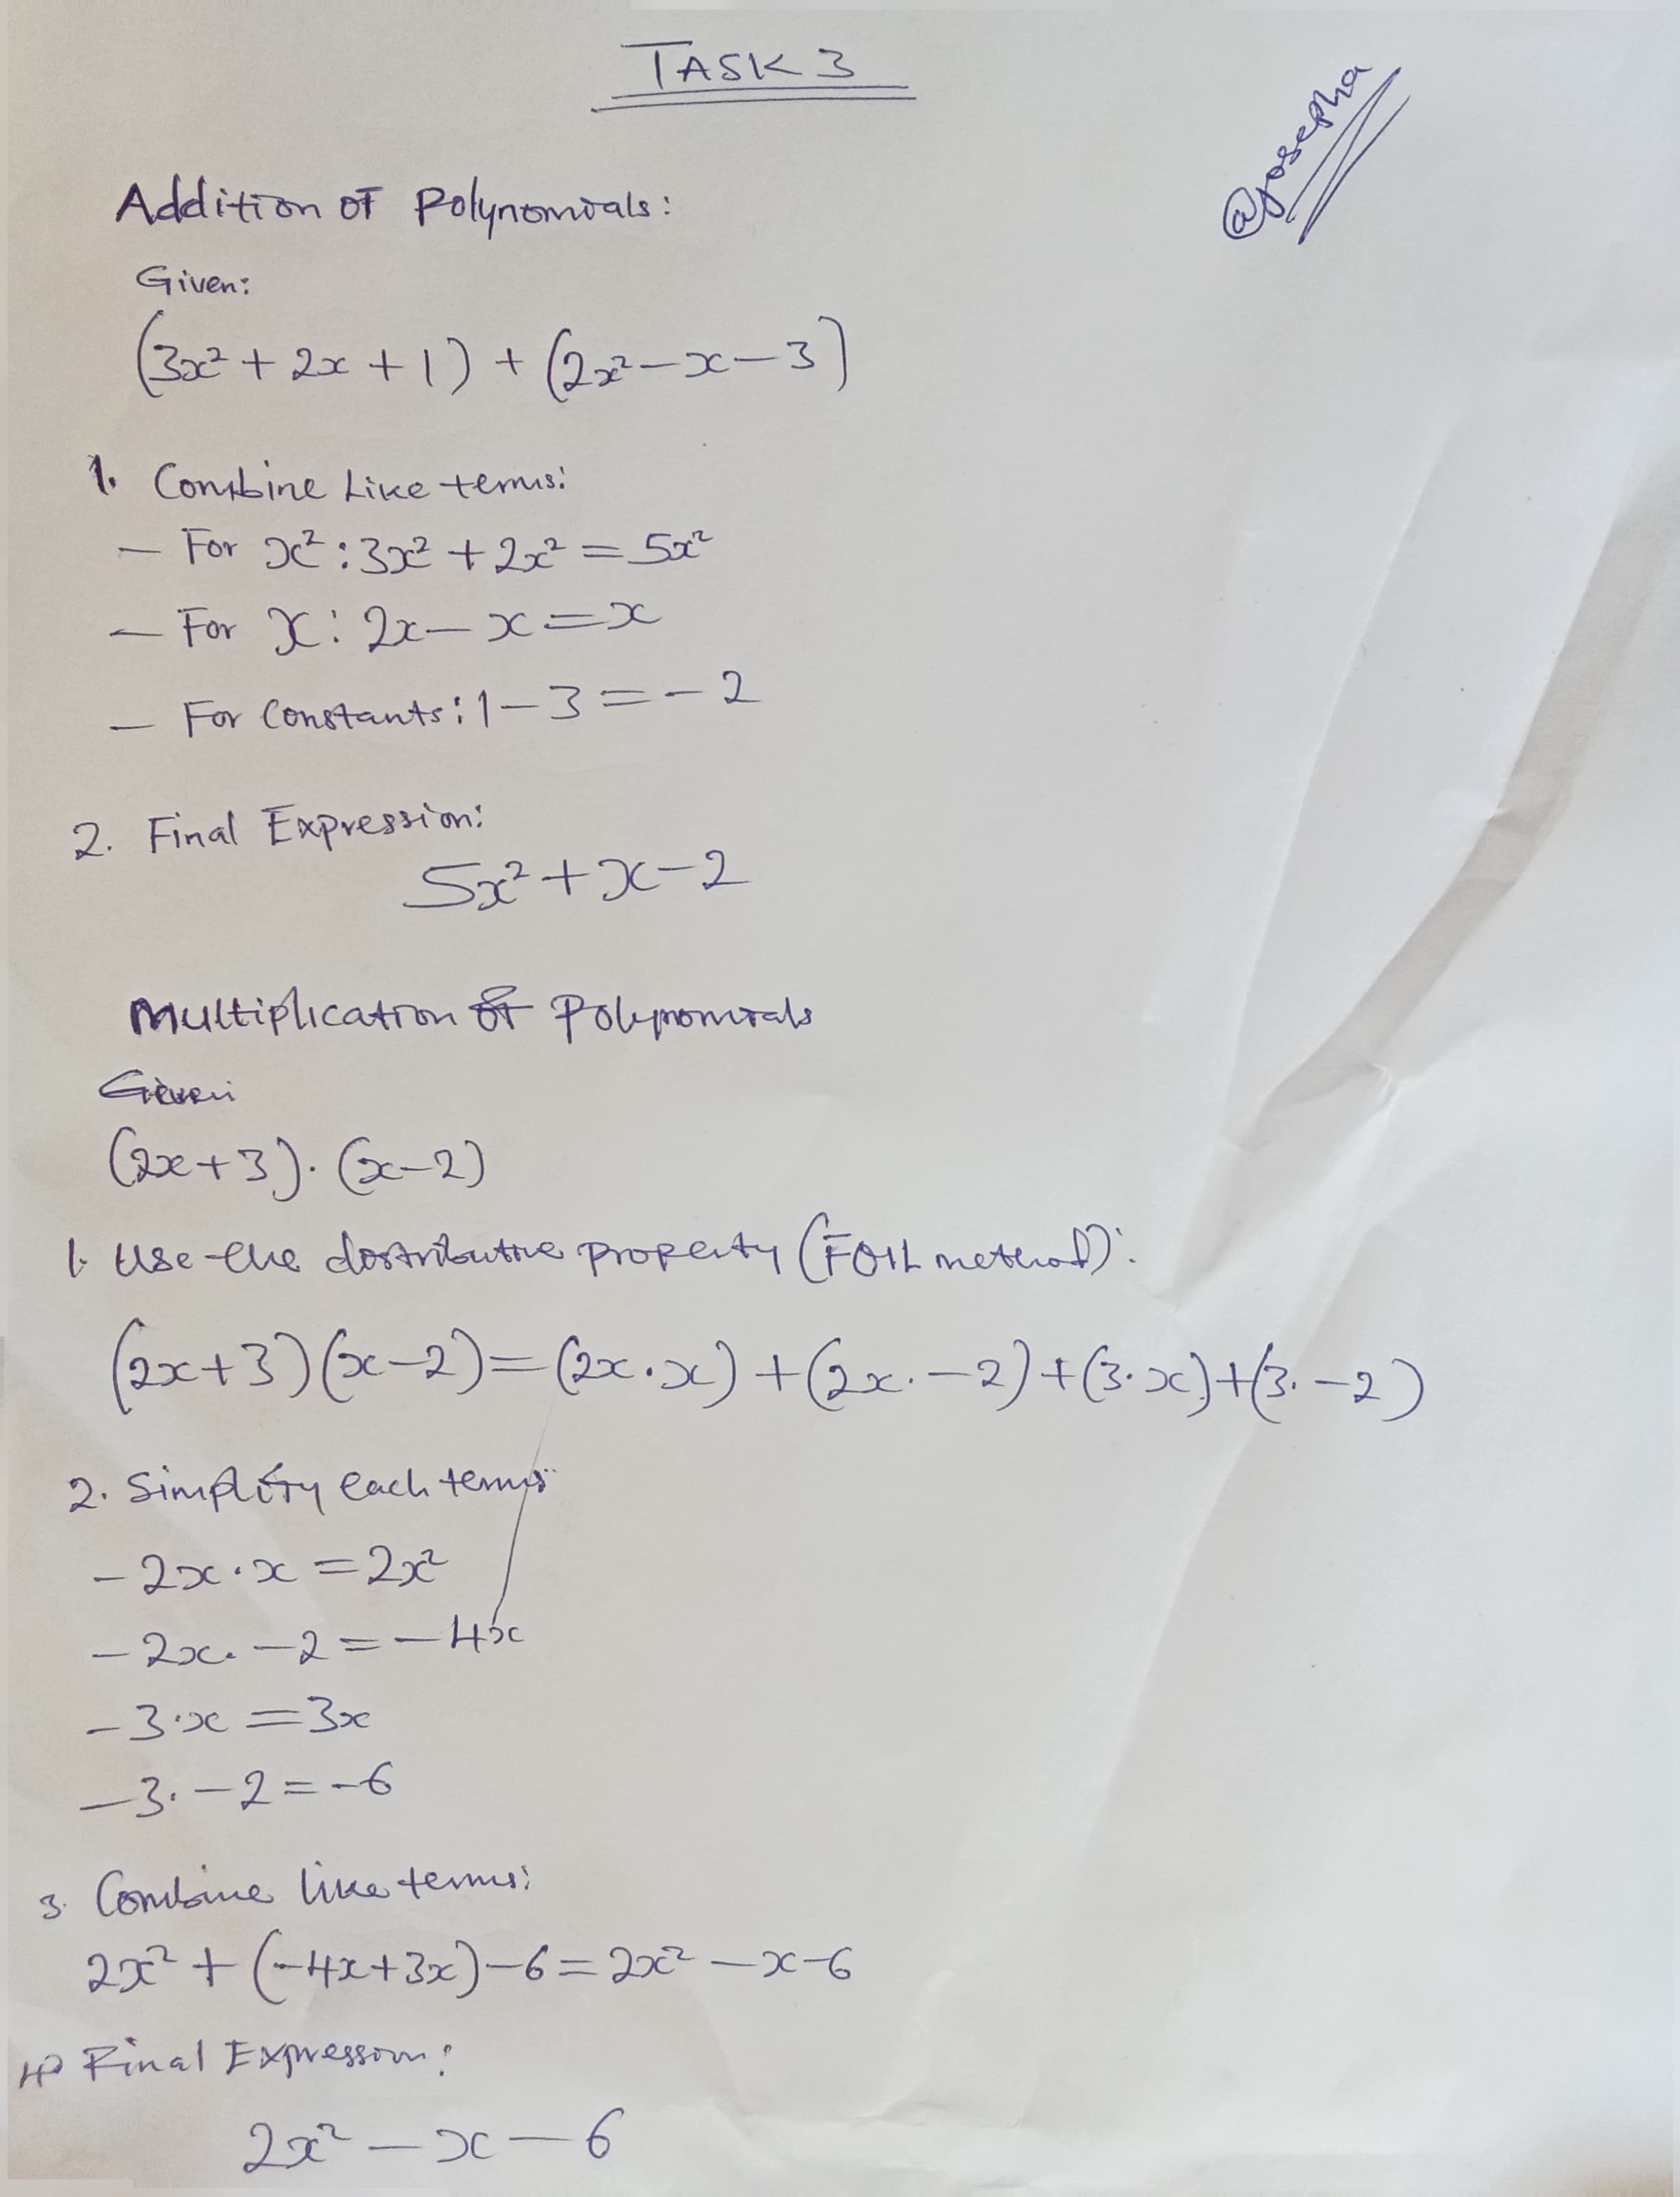 TASK 3
@Josepha
Addition of Polynomials:
Given:
(3x² + 2x + 1) + (2x² - x - 3)
1. Combine Like terms:
- For x²: 3x² + 2x² = 5x²
- For x: 2x - x = x
- For Constants: 1 - 3 = -2
2. Final Expression:
5x² + x - 2
Multiplication of Polynomials
Given:
(2x+3)·(x-2)
1. Use the distributive property (FOIL method):
(2x+3)(x-2) = (2x·x) + (2x·-2) + (3·x) + (3·-2)
2. Simplify each terms
- 2x·x = 2x²
- 2x·-2 = -4x
- 3·x = 3x
- 3·-2 = -6
3. Combine like terms:
2x² + (-4x+3x) - 6 = 2x² - x - 6
4) Final Expression:
2x² - x - 6